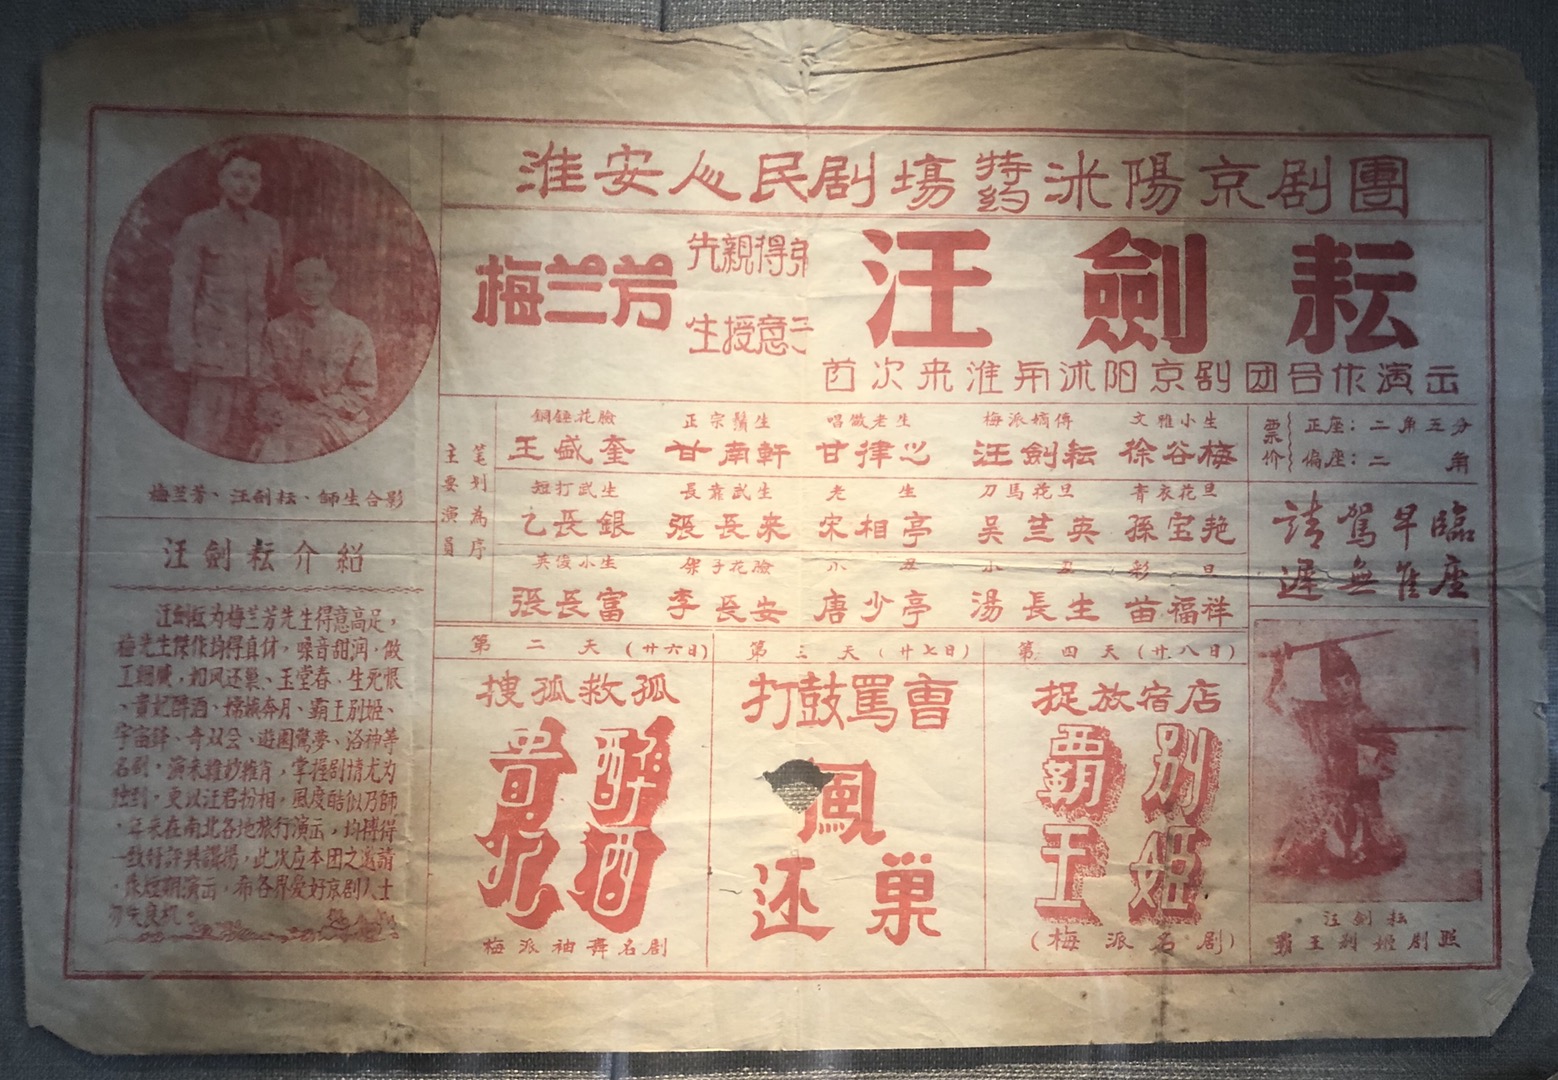 淮安人民剧場特约沭陽京剧團
梅兰芳先生親授得意弟子
汪劍耘
首次来淮与沭阳京剧团合作演出
梅兰芳、汪劍耘、師生合影
汪劍耘介紹
汪劍耘为梅兰芳先生得意高足，
梅先生傑作均得真传，嗓音甜润，做
工細膩，如凤还巢、玉堂春、生死恨
、貴妃醉酒、嫦娥奔月、霸王别姬、
宇宙鋒、奇双会、遊園驚夢、洛神等
名剧，演来維妙維肖，掌握剧情尤为
独到，更以汪君扮相，風度酷似乃師
，年来在南北各地旅行演出，均博得
一致好評與讚揚，此次应本团之邀請
，作短期演出，希各界爱好京剧人士
勿失良机。
主要演員 笔划為序
銅錘花臉 正宗鬚生 唱做老生 梅派嫡傳 文雅小生
王盛奎 甘南軒 甘律心 汪劍耘 徐谷梅
短打武生 長靠武生 老生 刀馬花旦 青衣花旦
乙長銀 張長来 宋相亭 吴兰英 孫宝艳
英俊小生 架子花臉 小丑 小丑 彩旦
張長富 李長安 唐少亭 湯長生 苗福祥
票价 正座：二角五分
偏座：二角
請駕早臨
遲無隹座
第二天（廿六日）
搜孤救孤
貴妃醉酒
梅派袖舞名剧
第三天（廿七日）
打鼓罵曹
鳳还巢
第四天（廿八日）
捉放宿店
霸王别姬
（梅派名剧）
汪劍耘
霸王别姬剧照